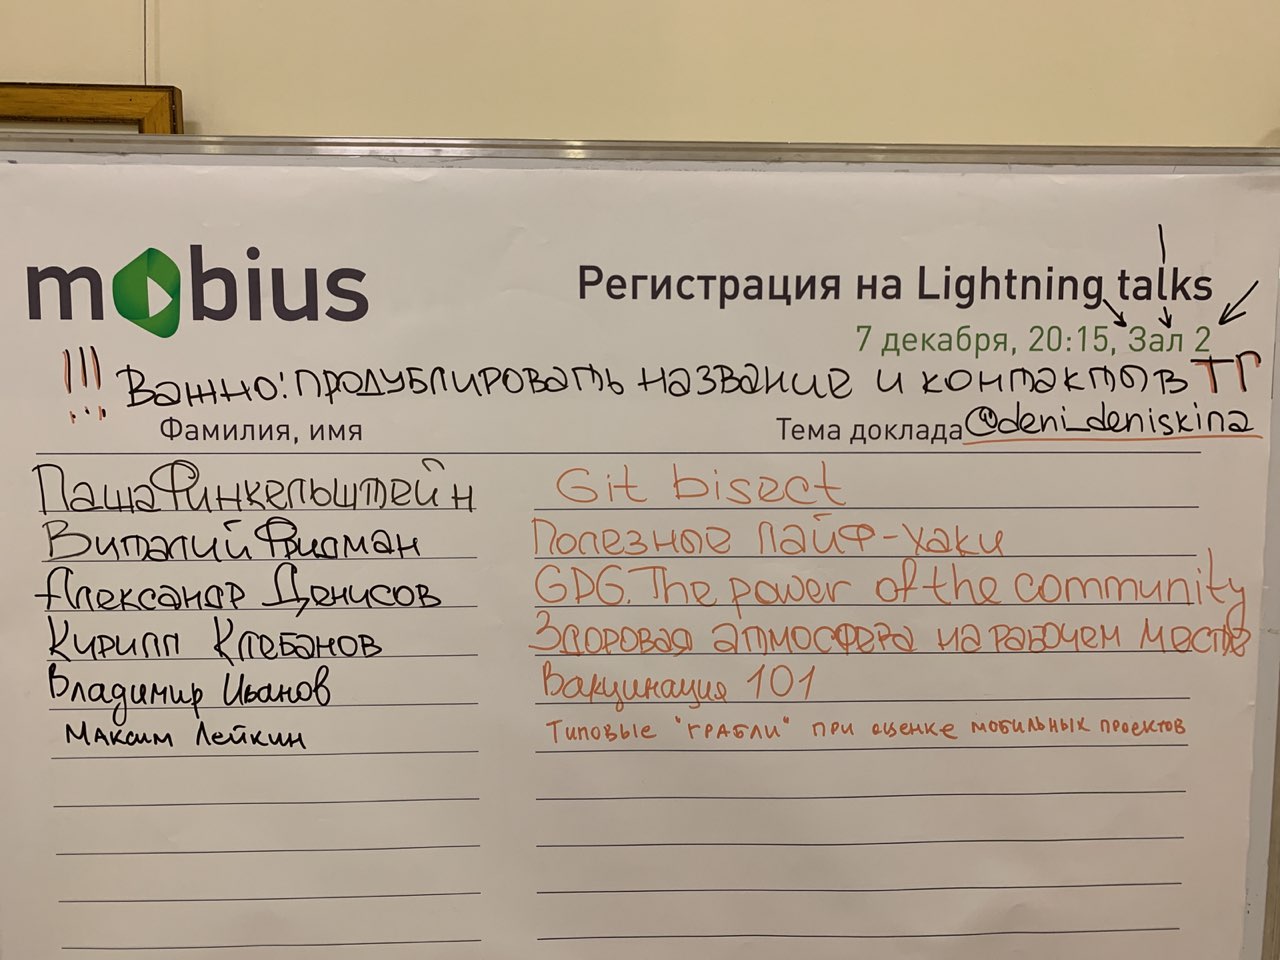 mobius
Регистрация на Lightning talks
7 декабря, 20:15, Зал 2
!!! Важно: продублировать название и контакты в ТГ
@deni_deniskina
Фамилия, имя Тема доклада
Паша Финкельштейн Git bisect
Виталий Фридман Полезные лайф-хаки
Александр Денисов GDG. The power of the community
Кирилл Клебанов Здоровая атмосфера на рабочем месте
Владимир Иванов Вакцинация 101
Максим Лейкин Типовые "грабли" при оценке мобильных проектов